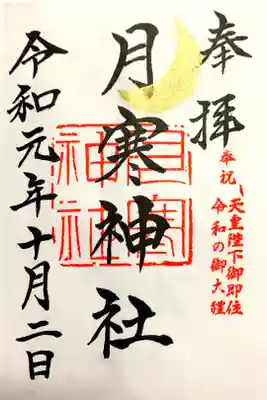 奉拝
奉祝
天皇陛下御即位
令和の御大禮
月寒神社
月寒
神社
令和元年十月二日